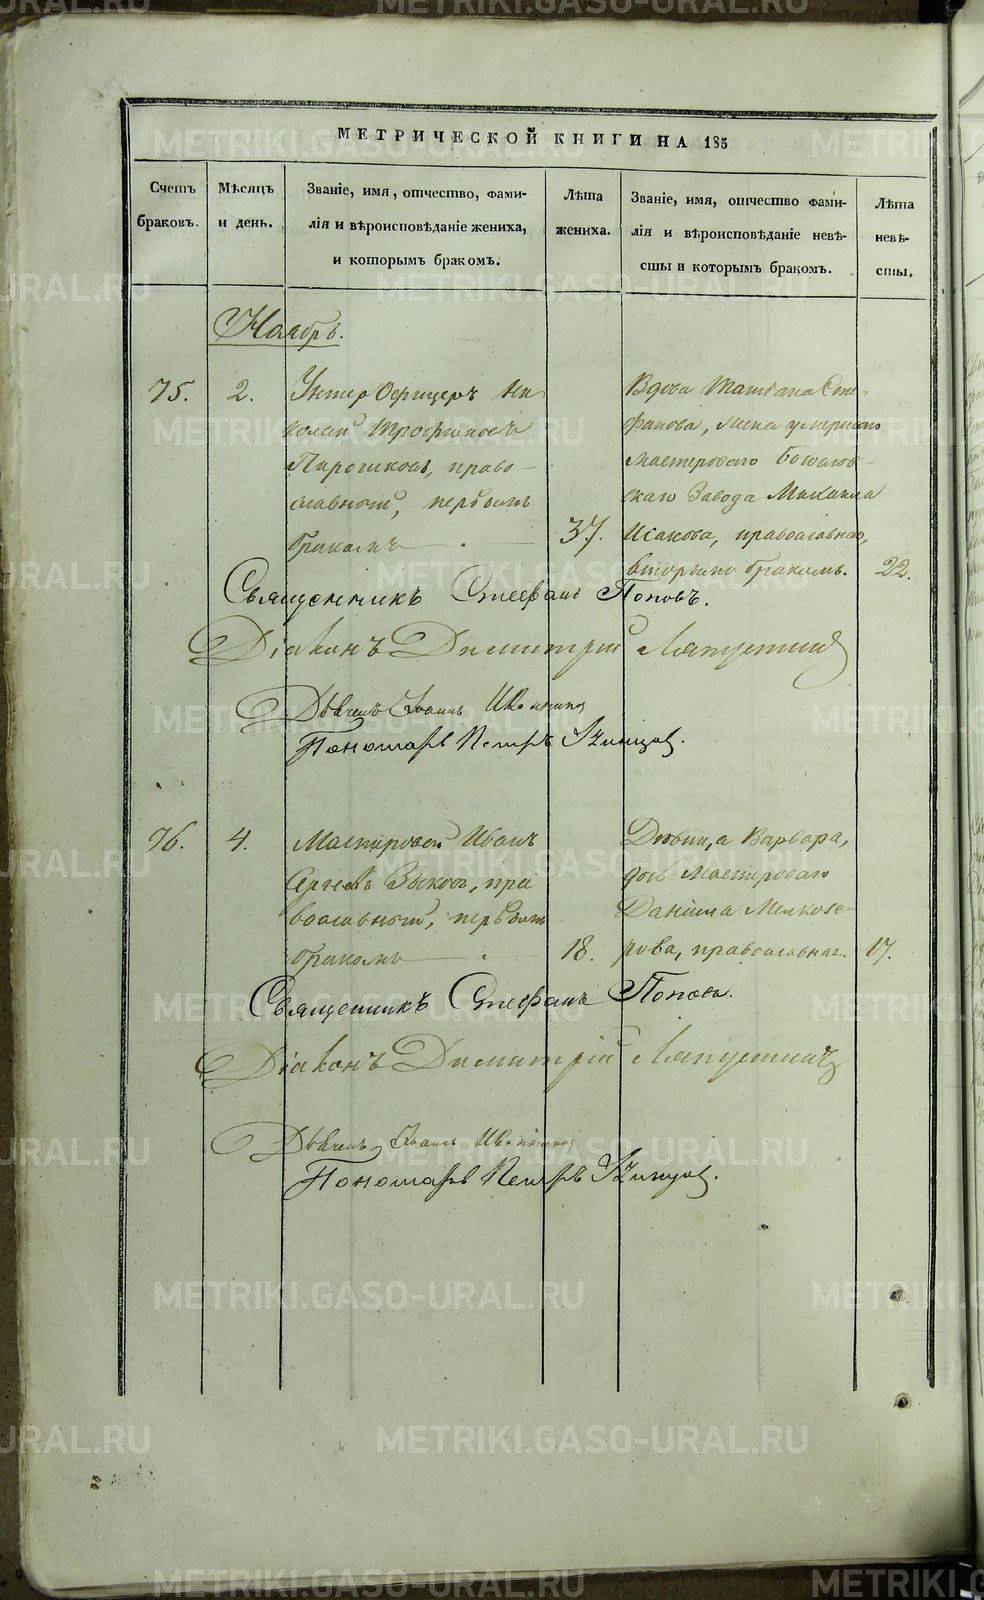 МЕТРИЧЕСКОЙ КНИГИ НА 185
Счетъ браковъ.
Мѣсяцъ и день.
Званіе, имя, отчество, фами-
лія и вѣроисповѣданіе жениха,
и которымъ бракомъ.
Лѣта жениха.
Званіе, имя, отчество фами-
лія и вѣроисповѣданіе невѣ-
сты и которымъ бракомъ.
Лѣта невѣ-
сты.
Ноябрь.
75.
2.
Унтер Офицеръ Ни-
колай Трофимовъ
Пирожковъ, право-
славный, первымъ
бракомъ
37.
Вдова Татіана Сте-
фанова, жена умершаго
мастероваго Богослов-
скаго Завода Михаила
Исакова, православнаго,
вторымъ бракомъ.
22.
Священникъ Стефанъ Поповъ.
Діаконъ Димитрій Ляпустинъ
Дьячекъ Іоаннъ
Пономарь Петръ
76.
4.
Мастеровой Иванъ
Сергѣевъ Зыковъ, пра
вославный, первымъ
бракомъ
18.
Дѣвица Варвара,
дочь Мастероваго
Даніила Мелкозе-
рова, православнаг.
17.
Священникъ Стефанъ Поповъ.
Діаконъ Димитрій Ляпустинъ
Дьячекъ Іоаннъ
Пономарь Петръ
METRIKI.GASO-URAL.RU